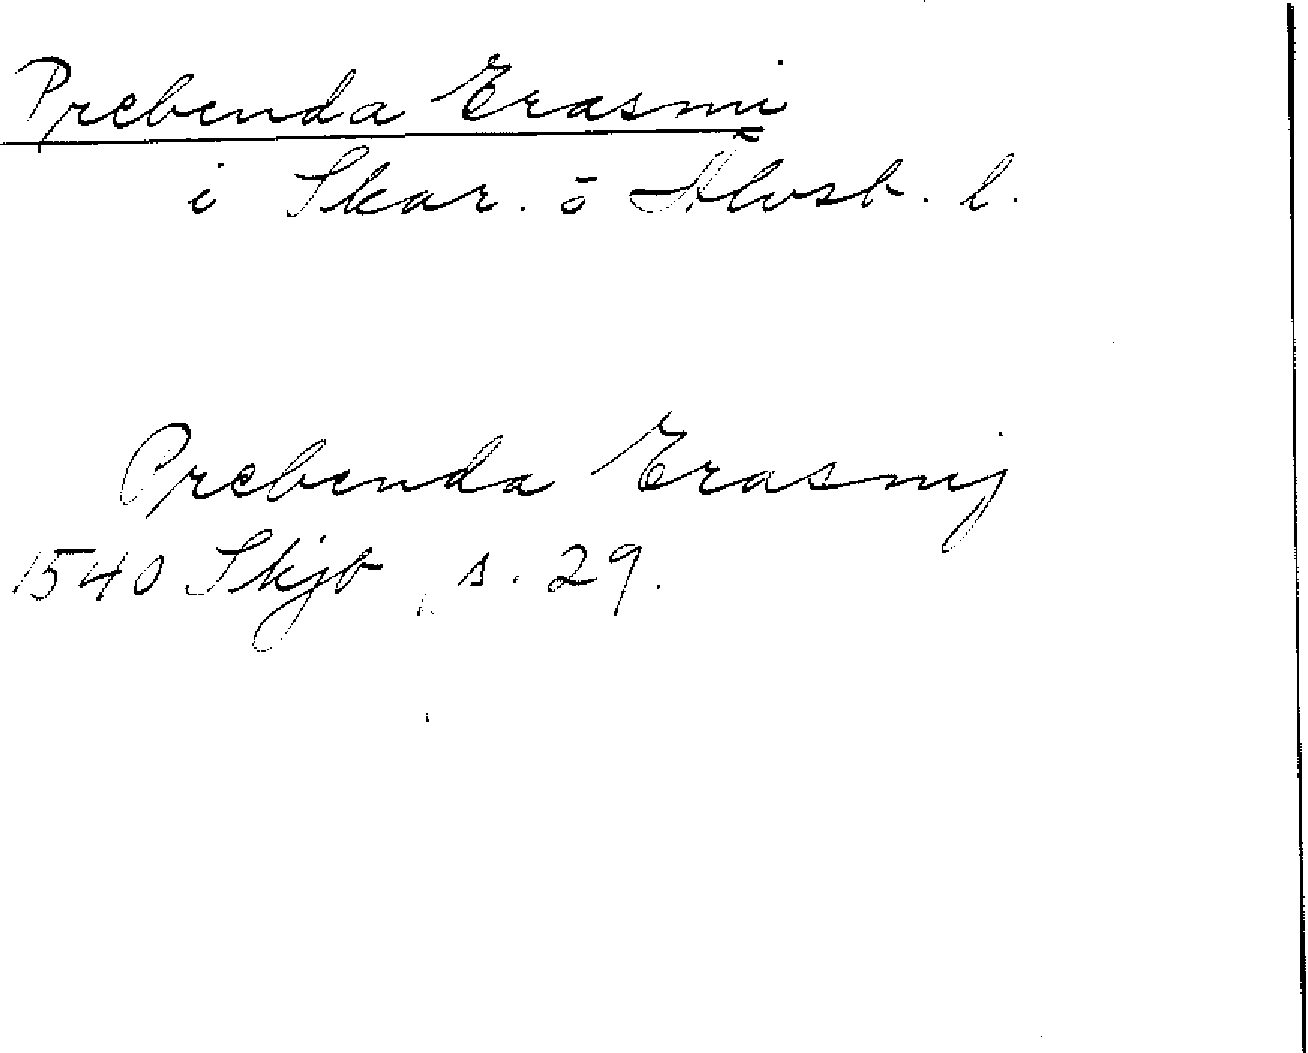 Prebenda Erasmi
i Skar. o Älvsb. l.
Prebenda Erasmij
1540 Skjb s. 29.